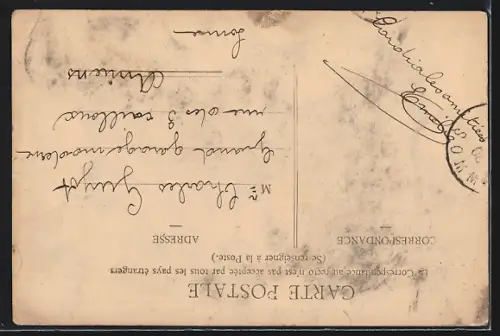 CARTE POSTALE
La Correspondance au recto n'est pas acceptée par tous les pays étrangers
(Se renseigner à la Poste.)
CORRESPONDANCE
ADRESSE
Cordiales amitiés
Mr Charles
Grand garage moderne
rue des 3 cailloux
Amiens
Somme